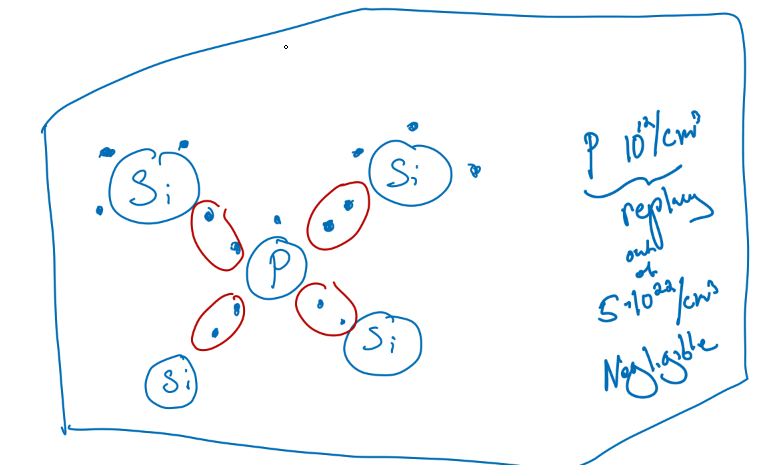 Si
Si
P
Si
Si
P 10¹²/cm³
replacing
out
of
5·10²²/cm³
Negligible